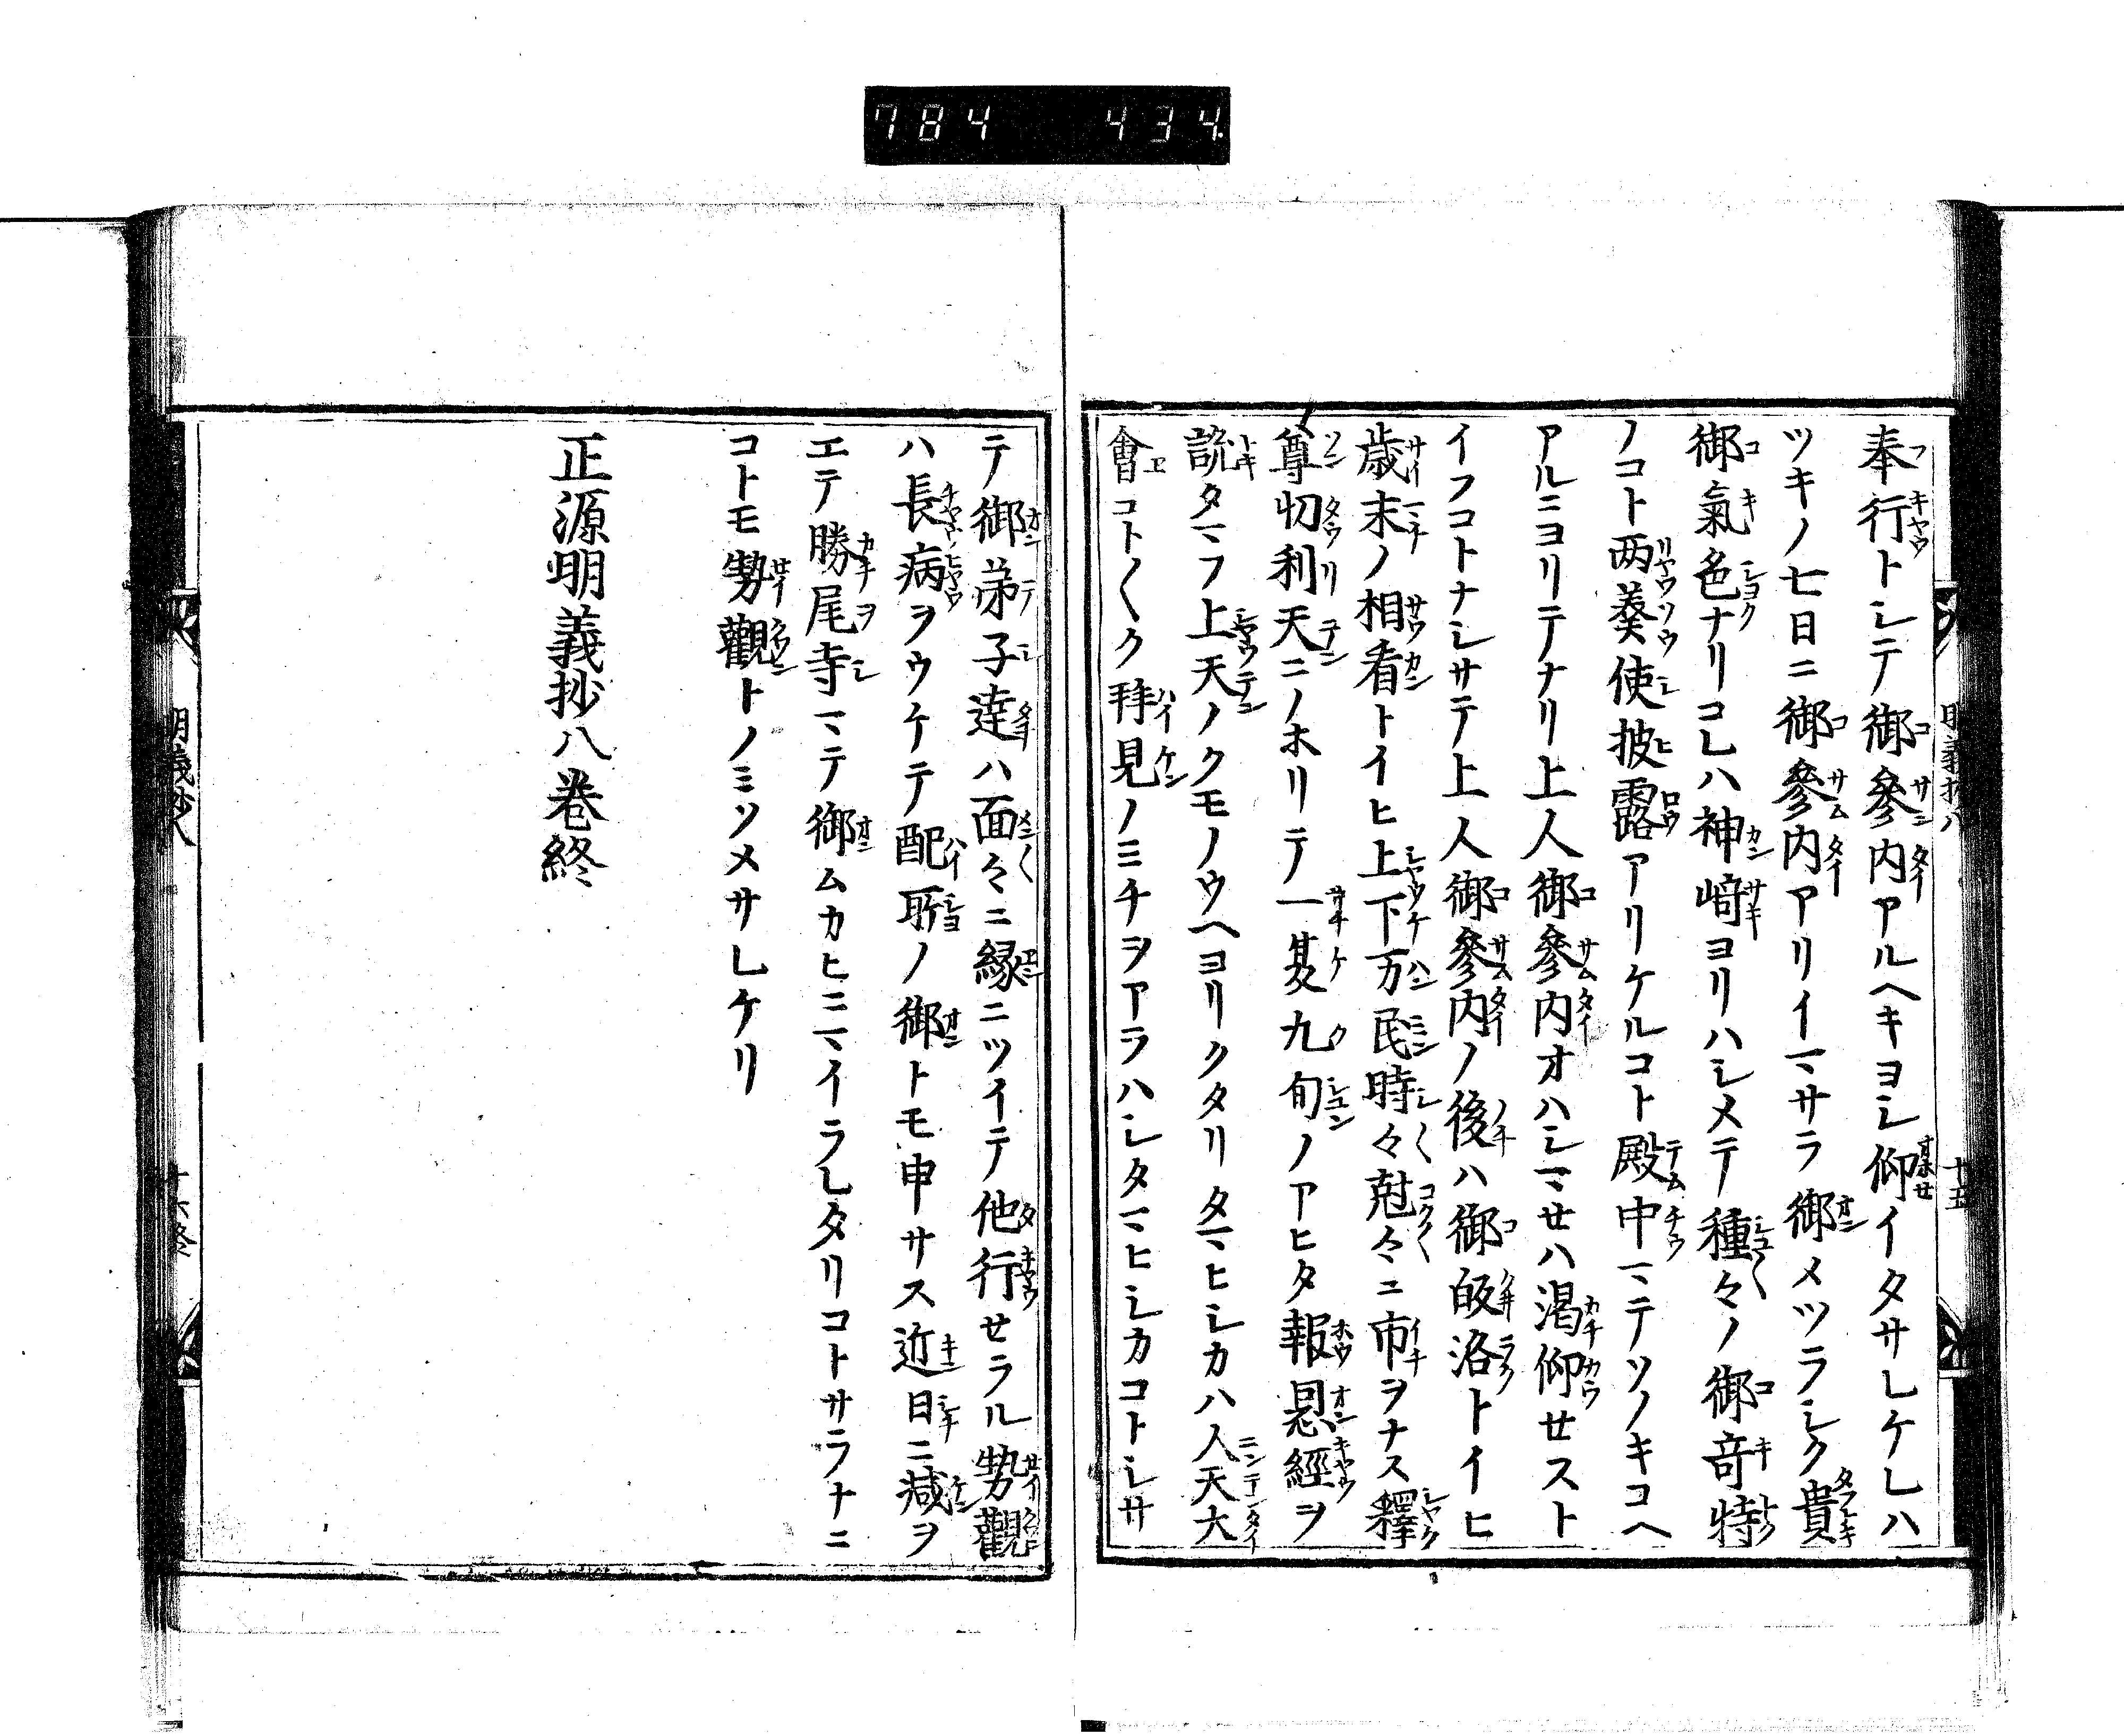 784 434
奉行トシテ御參内アルヘキヨシ仰イタサレケレハ
ツキノ七日ニ御參内アリイマサラ御メツラシク貴
御氣色ナリコレハ神﨑ヨリハシメテ種々ノ御竒特
ノコト两葵使披露アリケルコト殿中マテツノキコヘ
アルニヨリテナリ上人御參内オハシマセハ渇仰せスト
イフコトナシサテ上人御參内ノ後ハ御皈洛トイヒ
歳末ノ相看トイヒ上下万民時々尅々ニ市ヲナス釋
尊忉利天ニノホリテ一夏九旬ノアヒタ報恩經ヲ
説タマフ上天ノクモノウヘヨリクタリタマヒシカハ人天大
會コト〱ク拜見ノミチヲアラハシタマヒシカコトシサ
テ御弟子達ハ面々ニ縁ニツイテ他行せラル勢觀
ハ長病ヲウケテ配所ノ御トモ申サス近日ニ減ヲ
エテ勝尾寺マテ御ムカヒニマイラレタリコトサラナニ
コトモ勢觀トノミソメサレケリ
正源明義抄八巻終
明義抄八
十五
明義抄八
十六終